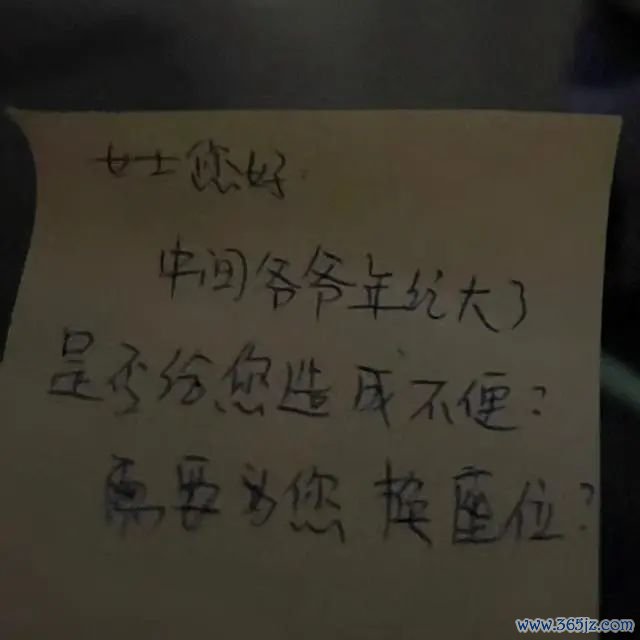 女士您好.
中间爷爷年纪大了
是否给您造成不便?
需要为您 换座位?
www.365jz.com